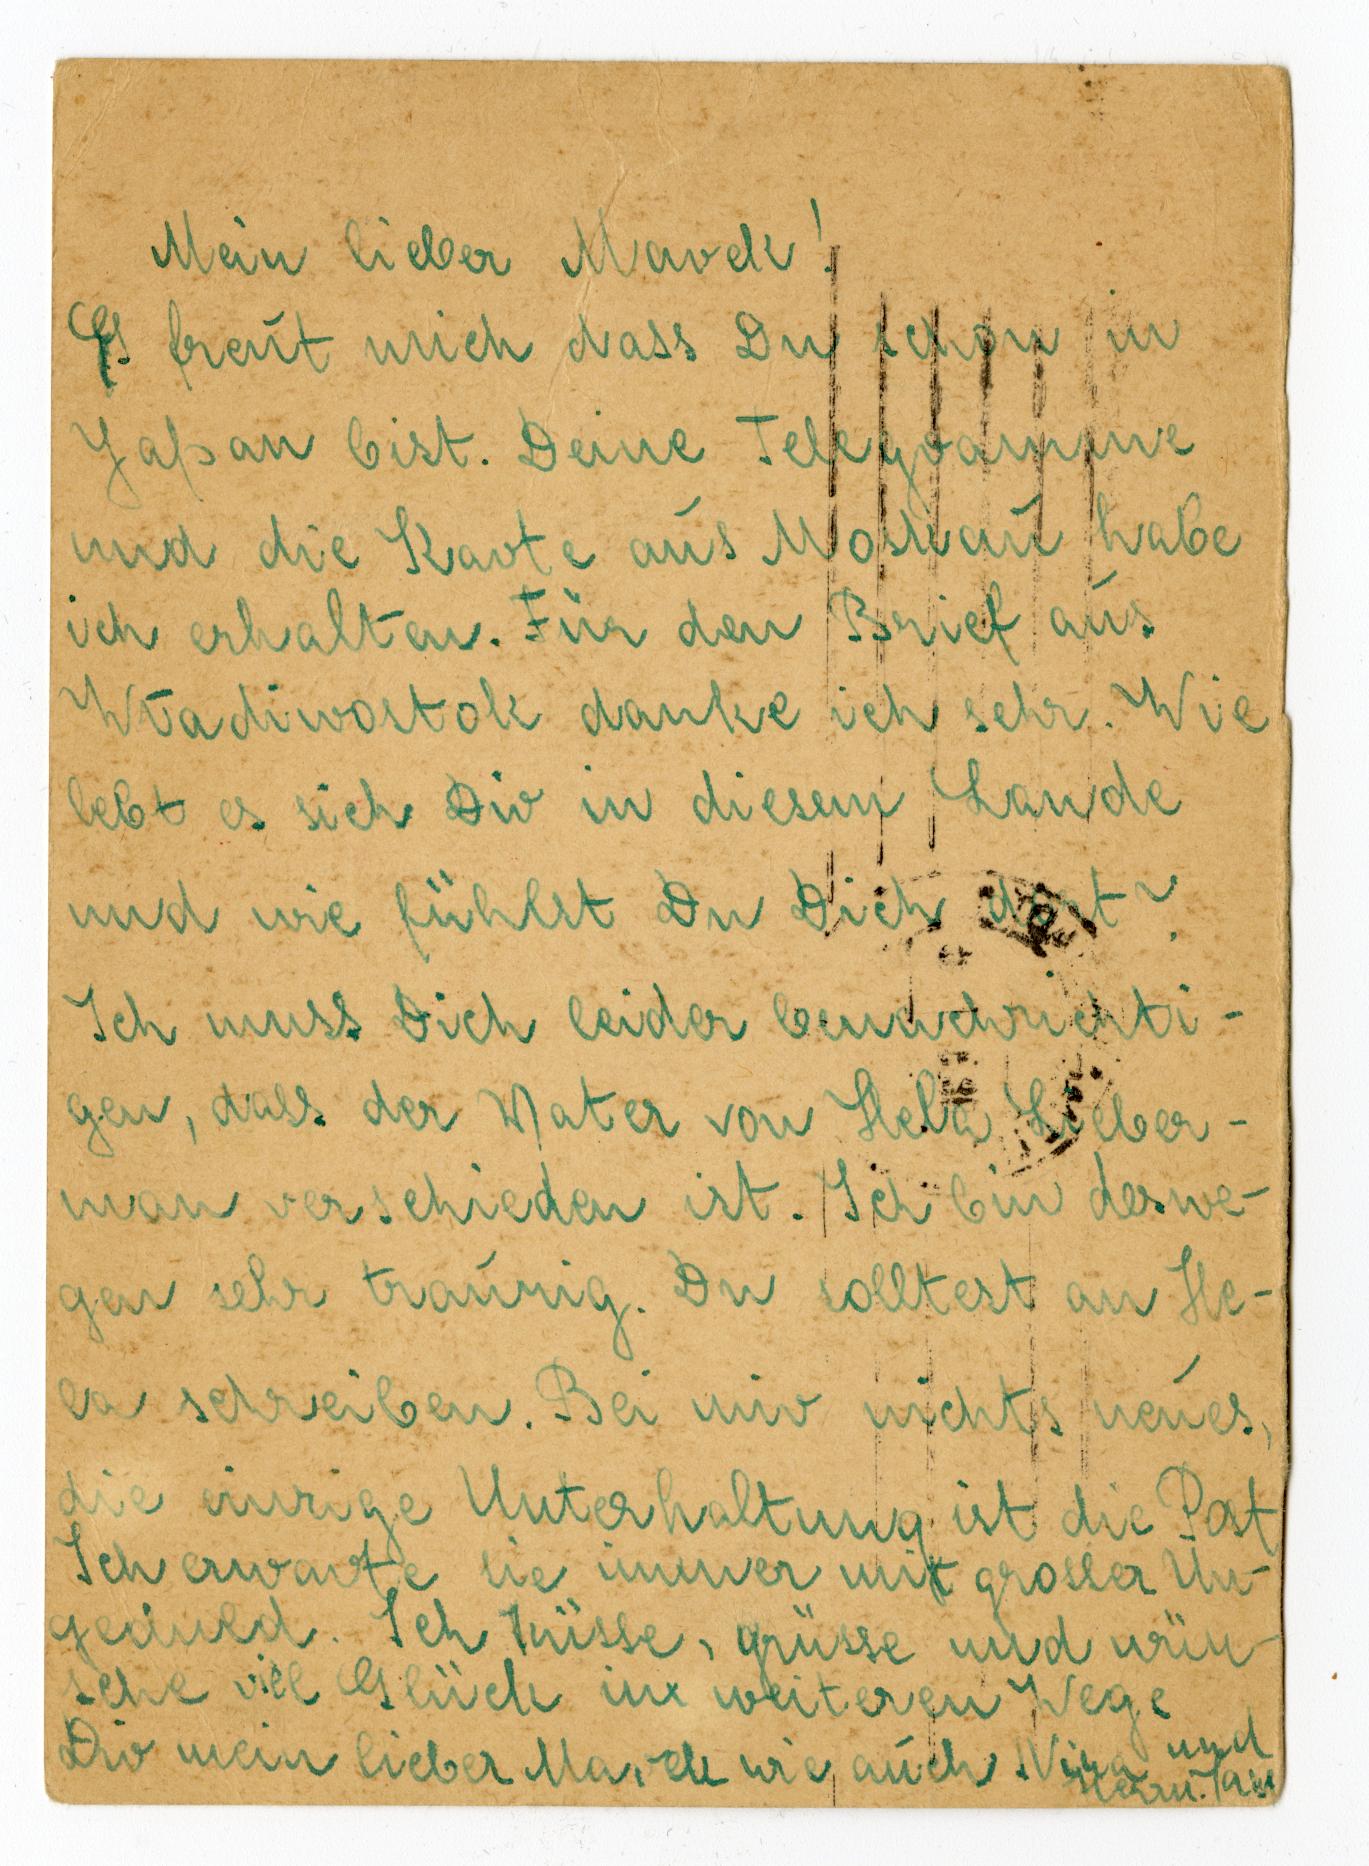 Mein lieber Marek!
Es freut mich dass Du schon in
Japan bist. Deine Telegramme
und die Karte aus Moskau habe
ich erhalten. Für den Brief aus
Wladiwostok danke ich sehr. Wie
lebt es sich Dir in diesem Lande
und wie fühlst Du Dich dort?
Ich muss Dich leider benachrichti-
gen, dass der Vater von Hela Lieber-
man verschieden ist. Ich bin deswe-
gen sehr traurig. Du solltest an He-
la schreiben. Bei mir nichts neues,
die einzige Unterhaltung ist die Post
Ich erwarte sie immer mit grosser Un-
geduld. Ich küsse, grüsse und wün-
sche viel Glück im weiteren Wege
Dir mein lieber Marek wie auch Nina und
Herrn